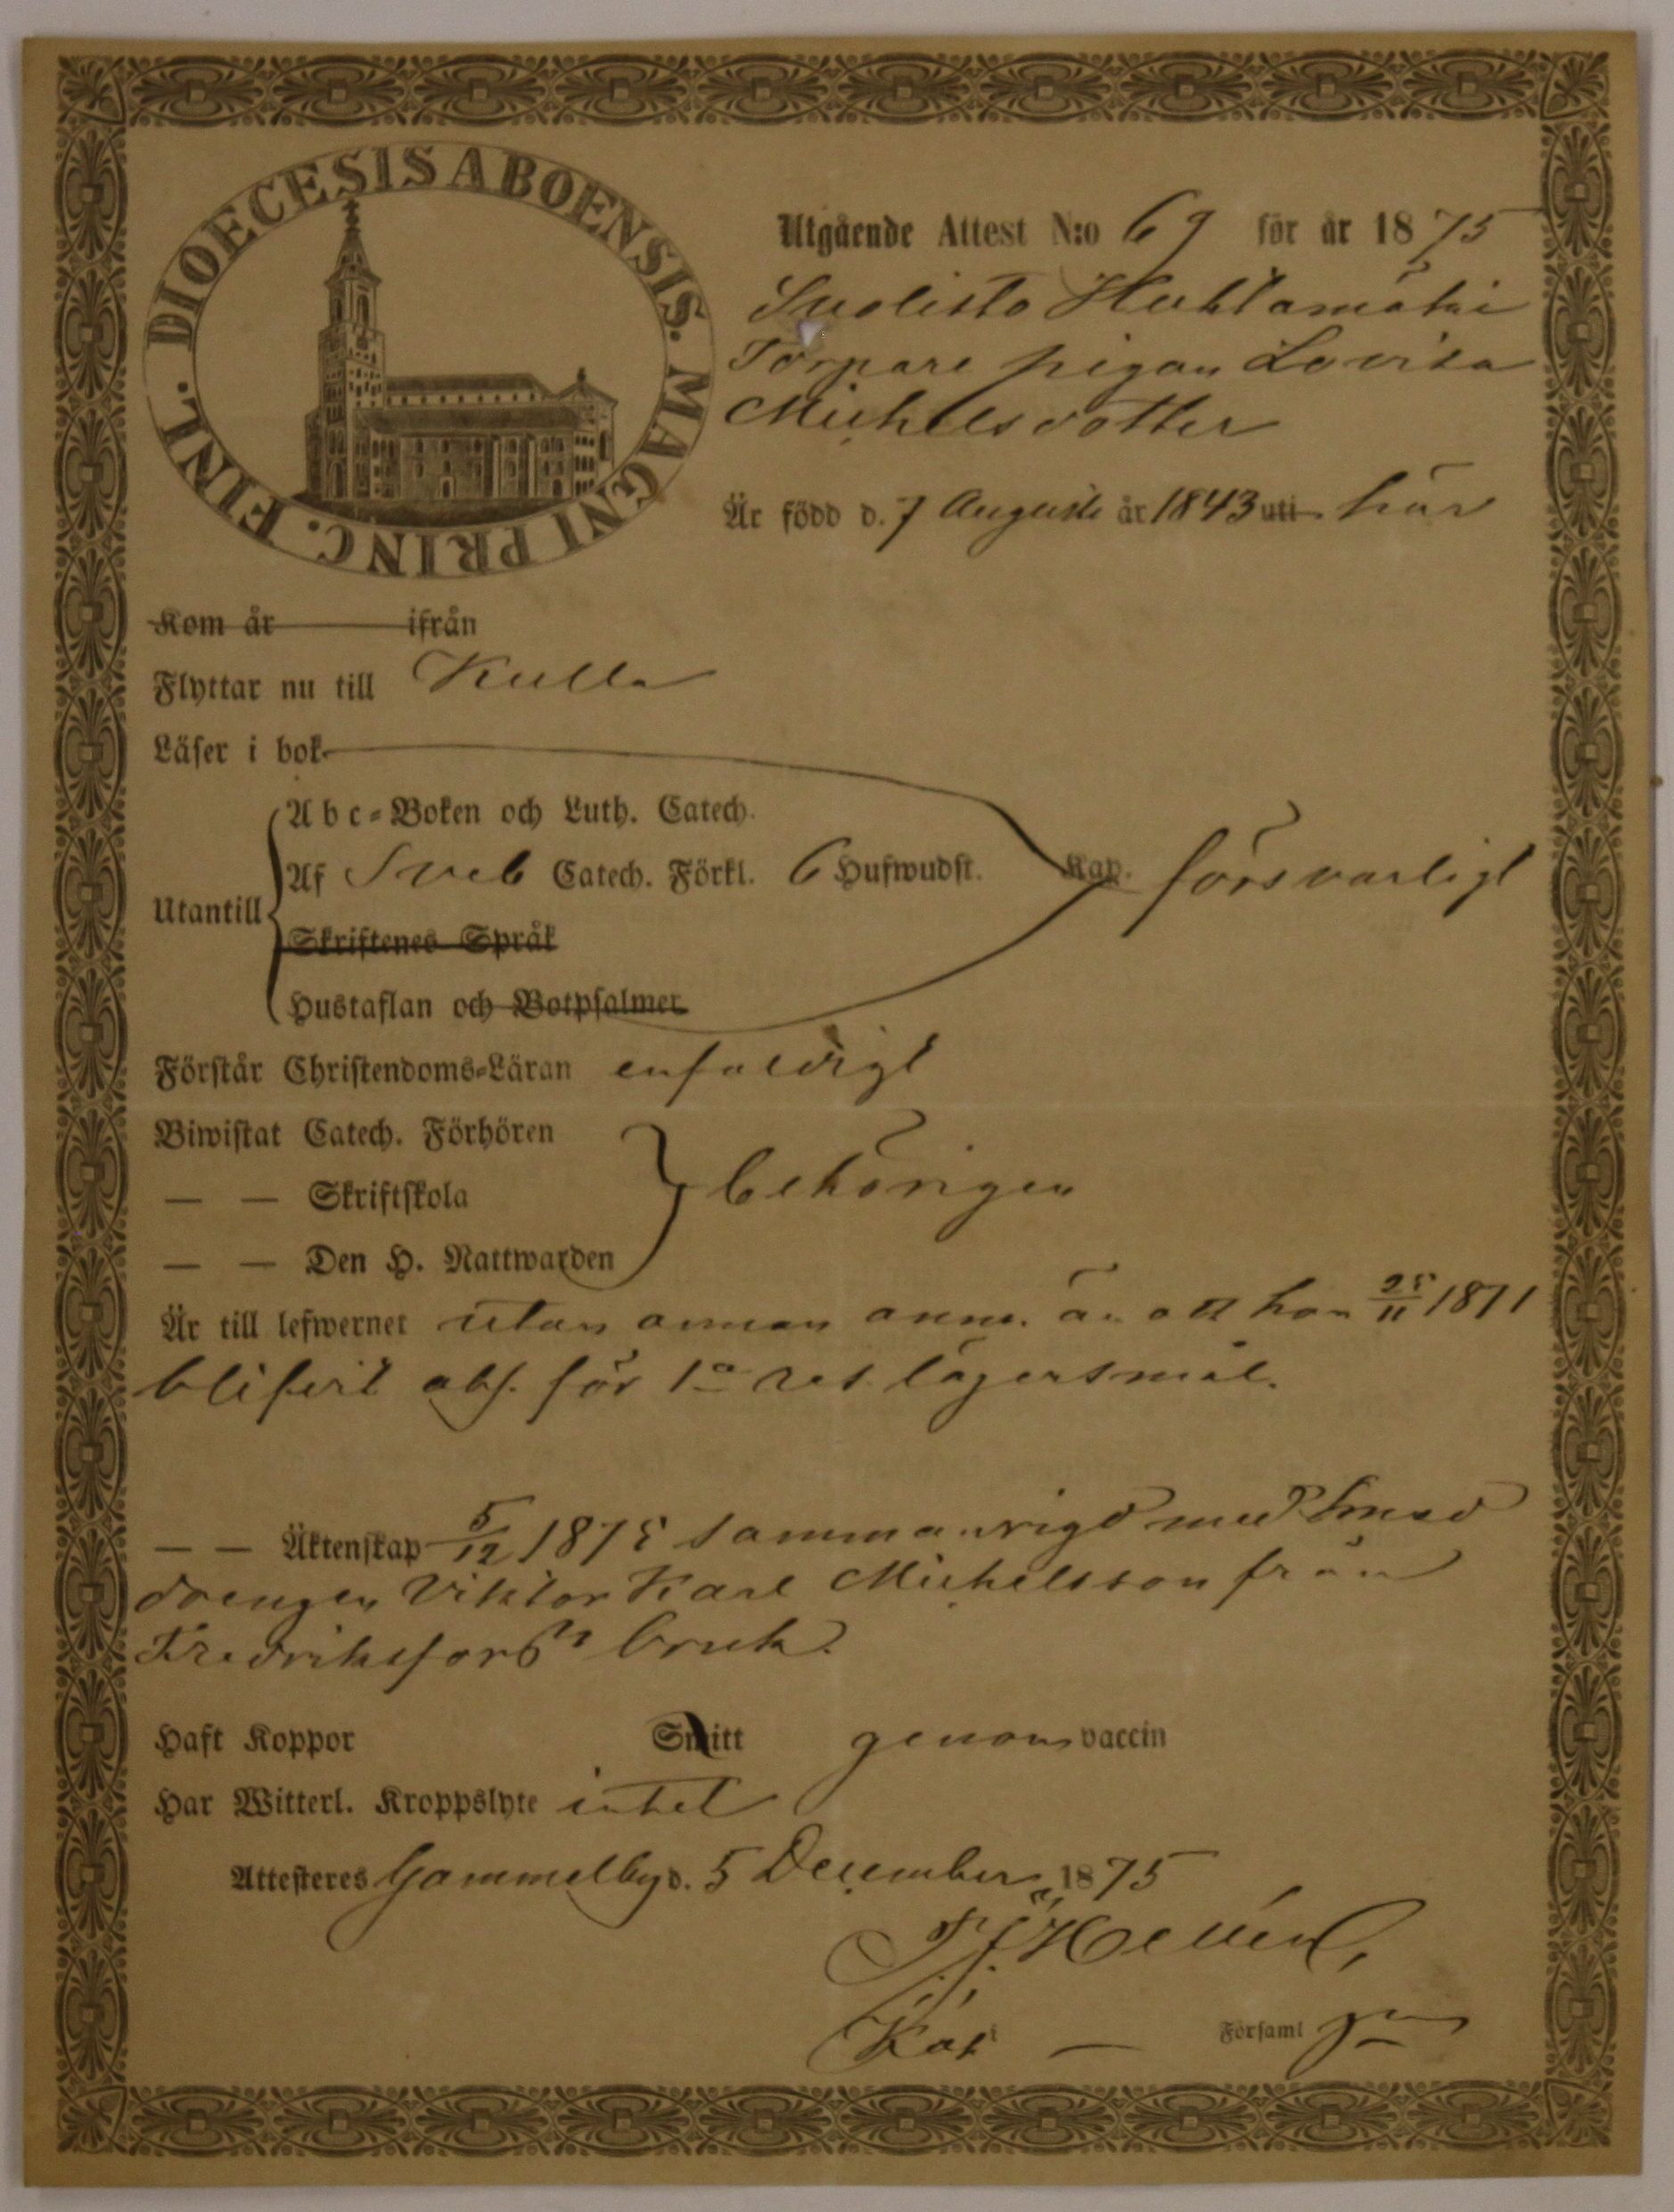 DIOECESIS ABOENSIS. MAGNI PRINC. FINL.
Utgående Attest N:o 69 för år 1875
Suolisto Huhtamäki
Torpare pigan Lovisa
Michelsdotter
Är född d. 7 Augusti år 1843 uti här
Kom år ifrån
Flyttar nu till Kulla
Läser i bok
Abc-Boken och Luth. Catech.
Utantill Af Sveb Catech. Förkl. 6 Hufwudst. Kap. försvarligt
Skriftenes Språk
Hustaflan och Botpsalmer
Förstår Christendoms-Läran enfaldigt
Biwistat Catech. Förhören
— — Skriftskola behörigen
— — Den H. Nattwarden
Är till lefwernet utan annan anm. än att hon 25/11 1871
blifvit abs. för 1a res. lägersmål.
— — Äktenskap 5/12 1875 sammanvigd med
drengen Viktor Karl Michelsson från
Fredriksfors bruk.
Haft Koppor Smitt genom vaccin
Har Witterl. Kroppslyte intet
Attesteres Gammelby d. 5 December 1875
Församl